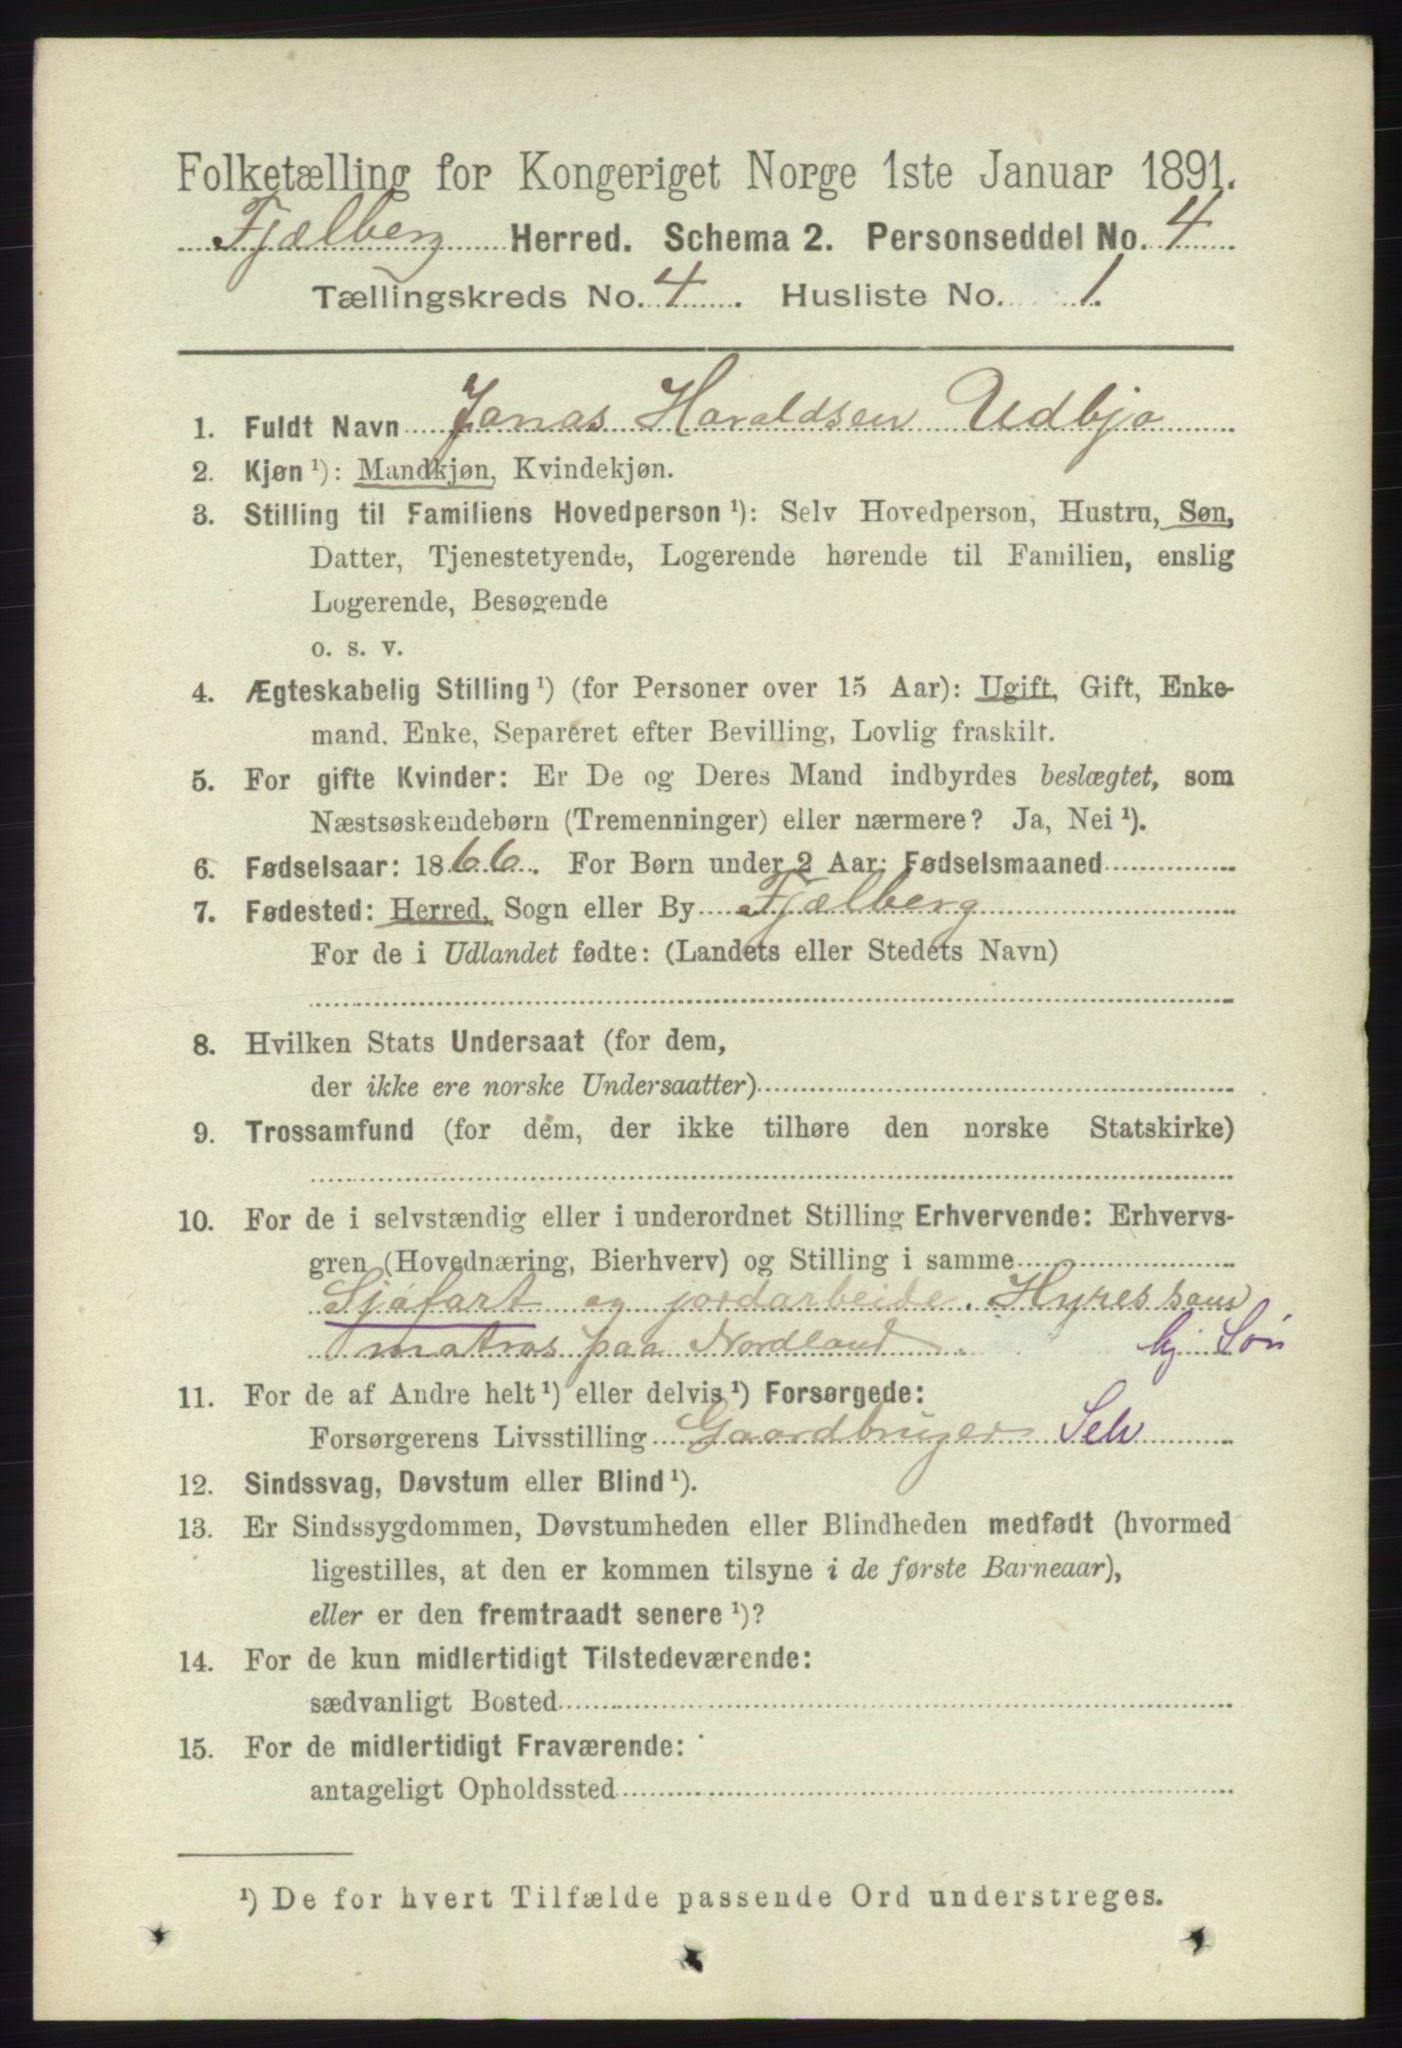 Folketælling for Kongeriget Norge 1ste Januar 1891.
Fjælberg Herred. Schema 2. Personseddel No. 4
Tællingskreds No. 4. Husliste No. 1.
1. Fuldt Navn Jonas Haraldsen Udbjo
2. Kjøn ¹): Mandkjøn, Kvindekjøn.
3. Stilling til Familiens Hovedperson ¹): Selv Hovedperson, Hustru, Søn,
Datter, Tjenestetyende, Logerende hørende til Familien, enslig
Logerende, Besøgende
o. s. v.
4. Ægteskabelig Stilling ¹) (for Personer over 15 Aar): Ugift, Gift, Enke-
mand, Enke, Separeret efter Bevilling, Lovlig fraskilt.
5. For gifte Kvinder: Er De og Deres Mand indbyrdes beslægtet, som
Næstsøskendebørn (Tremenninger) eller nærmere? Ja, Nei ¹).
6. Fødselsaar: 1866. For Børn under 2 Aar: Fødselsmaaned
7. Fødested: Herred, Sogn eller By Fjælberg
For de i Udlandet fødte: (Landets eller Stedets Navn)
8. Hvilken Stats Undersaat (for dem,
der ikke ere norske Undersaatter)
9. Trossamfund (for dem, der ikke tilhøre den norske Statskirke)
10. For de i selvstændig eller i underordnet Stilling Erhvervende: Erhvervs-
gren (Hovednæring, Bierhverv) og Stilling i samme
Sjøfart og jordarbeide. Hyres som
matros paa Nordland. hj Søn
11. For de af Andre helt ¹) eller delvis ¹) Forsørgede:
Forsørgerens Livsstilling Gaardbruger Selv
12. Sindssvag, Døvstum eller Blind ¹).
13. Er Sindssygdommen, Døvstumheden eller Blindheden medfødt (hvormed
ligestilles, at den er kommen tilsyne i de første Barneaar),
eller er den fremtraadt senere ¹)?
14. For de kun midlertidigt Tilstedeværende:
sædvanligt Bosted
15. For de midlertidigt Fraværende:
antageligt Opholdssted
¹) De for hvert Tilfælde passende Ord understreges.